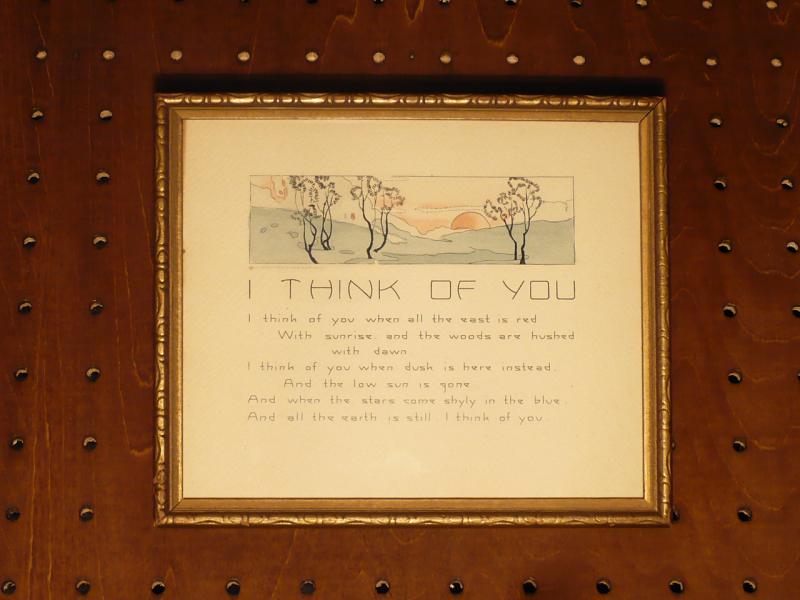 I THINK OF YOU
I think of you when all the east is red
With sunrise, and the woods are hushed
with dawn
I think of you when dusk is here instead.
And the low sun is gone.
And when the stars come shyly in the blue.
And all the earth is still. I think of you.